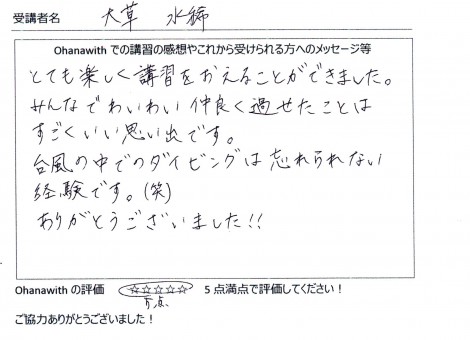 受講者名 大草 水稀
Ohanawith での講習の感想やこれから受けられる方へのメッセージ等
とても楽しく講習をおえることができました。
みんなでわいわい仲良く過せたことは
すごくいい思い出です。
台風の中でのダイビングは忘れられない
経験です。(笑)
ありがとうございました!!
Ohanawith の評価 ☆☆☆☆☆ 5点満点で評価してください!
5点。
ご協力ありがとうございました!